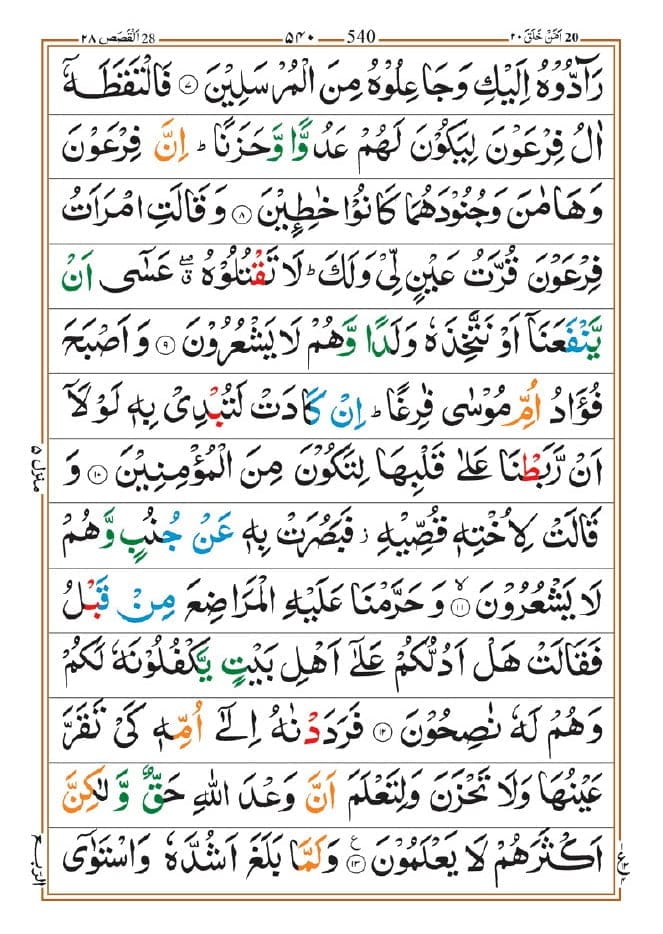 28 اَلْقَصَص ٢٨ ۵۴۰ 540 ٢٠ اَمَّنْ خَلَقَ 20
رَآدُّوْهُ اِلَيْكِ وَجَاعِلُوْهُ مِنَ الْمُرْسَلِيْنَ ۝٧ فَالْتَقَطَهٗۤ
اٰلُ فِرْعَوْنَ لِيَكُوْنَ لَهُمْ عَدُوًّا وَّحَزَنًا ؕ اِنَّ فِرْعَوْنَ
وَهَامٰنَ وَجُنُوْدَهُمَا كَانُوْا خٰطِـِٕيْنَ ۝٨ وَقَالَتِ امْرَاَتُ
فِرْعَوْنَ قُرَّتُ عَيْنٍ لِّىْ وَلَكَ ؕ لَا تَقْتُلُوْهُ ۖۗ عَسٰٓى اَنْ
يَّنْفَعَنَاۤ اَوْ نَتَّخِذَهٗ وَلَدًا وَّهُمْ لَا يَشْعُرُوْنَ ۝٩ وَاَصْبَحَ
فُؤَادُ اُمِّ مُوْسٰى فٰرِغًا ؕ اِنْ كَادَتْ لَتُبْدِىْ بِهٖ لَوْلَاۤ
اَنْ رَّبَطْنَا عَلٰى قَلْبِهَا لِتَكُوْنَ مِنَ الْمُؤْمِنِيْنَ ۝١٠ وَ
قَالَتْ لِاُخْتِهٖ قُصِّيْهِ ؗ فَبَصُرَتْ بِهٖ عَنْ جُنُبٍ وَّهُمْ
لَا يَشْعُرُوْنَ ۙ‏۝١١ وَحَرَّمْنَا عَلَيْهِ الْمَرَاضِعَ مِنْ قَبْلُ
فَقَالَتْ هَلْ اَدُلُّكُمْ عَلٰٓى اَهْلِ بَيْتٍ يَّكْفُلُوْنَهٗ لَكُمْ
وَهُمْ لَهٗ نٰصِحُوْنَ ۝١٢ فَرَدَدْنٰهُ اِلٰٓى اُمِّهٖ كَىْ تَقَرَّ
عَيْنُهَا وَلَا تَحْزَنَ وَلِتَعْلَمَ اَنَّ وَعْدَ اللّٰهِ حَقٌّ وَّلٰكِنَّ
اَكْثَرَهُمْ لَا يَعْلَمُوْنَ ۝١٣ ع وَلَمَّا بَلَغَ اَشُدَّهٗ وَاسْتَوٰٓى
منزل ۵
الربع